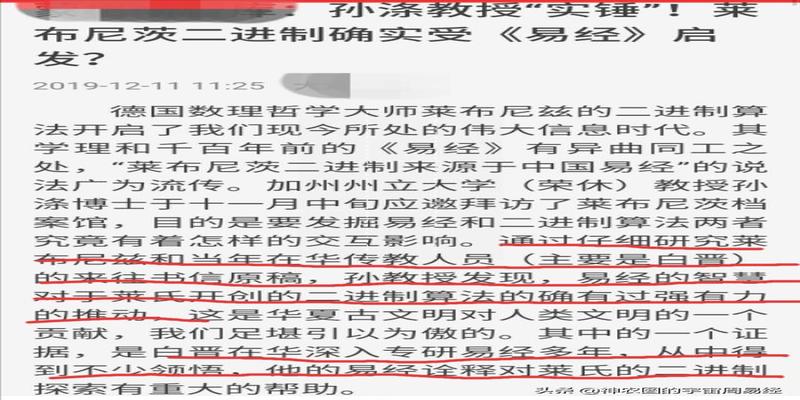 库：孙涤教授“实锤”！莱
布尼茨二进制确实受《易经》启
发？
2019-12-11 11:25
德国数理哲学大师莱布尼兹的二进制算
法开启了我们现今所处的伟大信息时代。其
学理和千百年前的《易经》有异曲同工之
处，“莱布尼茨二进制来源于中国易经”的说
法广为流传。加州州立大学（荣休）教授孙
涤博士于十一月中旬应邀拜访了莱布尼茨档
案馆，目的是要发掘易经和二进制算法两者
究竟有着怎样的交互影响。通过仔细研究莱
布尼兹和当年在华传教人员（主要是白晋）
的来往书信原稿，孙教授发现，易经的智慧
对于莱氏开创的二进制算法的确有过强有力
的推动，这是华夏古文明对人类文明的一个
贡献，我们足堪引以为傲的。其中的一个证
据，是白晋在华深入专研易经多年，从中得
到不少领悟，他的易经诠释对莱氏的二进制
探索有重大的帮助。
头条@神农图的宇宙周易经